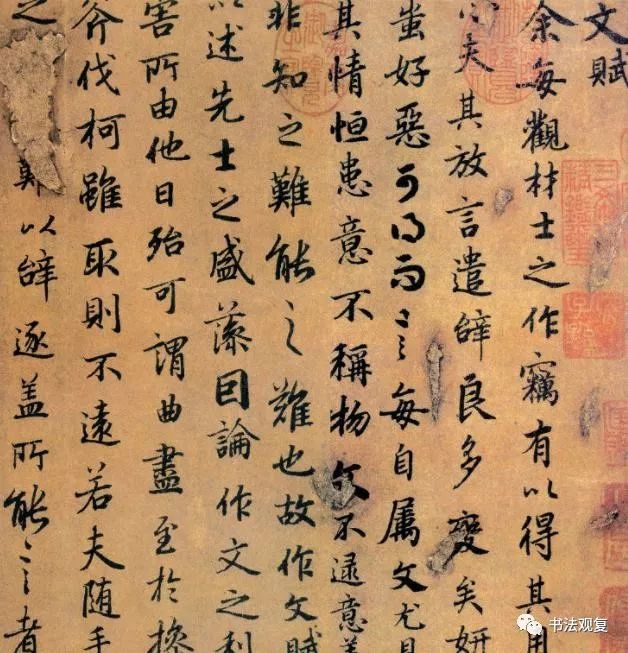 文賦
余每觀材士之作竊有以得其用
心夫其放言遣辝良多變矣妍
蚩好惡可得而〻言每自属文尤見
其情恒患意不稱物文不逮意盖
非知之難能之難也故作文賦
以述先士之盛藻因論作文之利
害所由他日殆可謂曲盡至於操
斧伐柯雖取則不遠若夫随手
之難以辝逐盖所能言者
书法观复